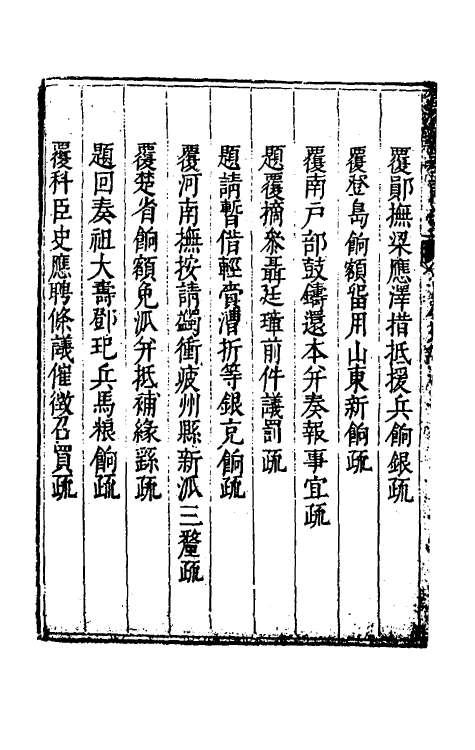 覆鄖撫梁應澤措抵援兵餉銀疏
覆登島餉額留用山東新餉疏
覆南戶部鼓鑄還本并奏報事宜疏
題覆摘參聶廷璋前件議罰疏
題請暫借輕賫漕折等銀充餉疏
覆河南撫按請蠲衝疲州縣新派三釐疏
覆楚省餉額免派并抵補緣繇疏
題回奏祖大壽鄧玘兵馬粮餉疏
覆科臣史應聘條議催徵召買疏